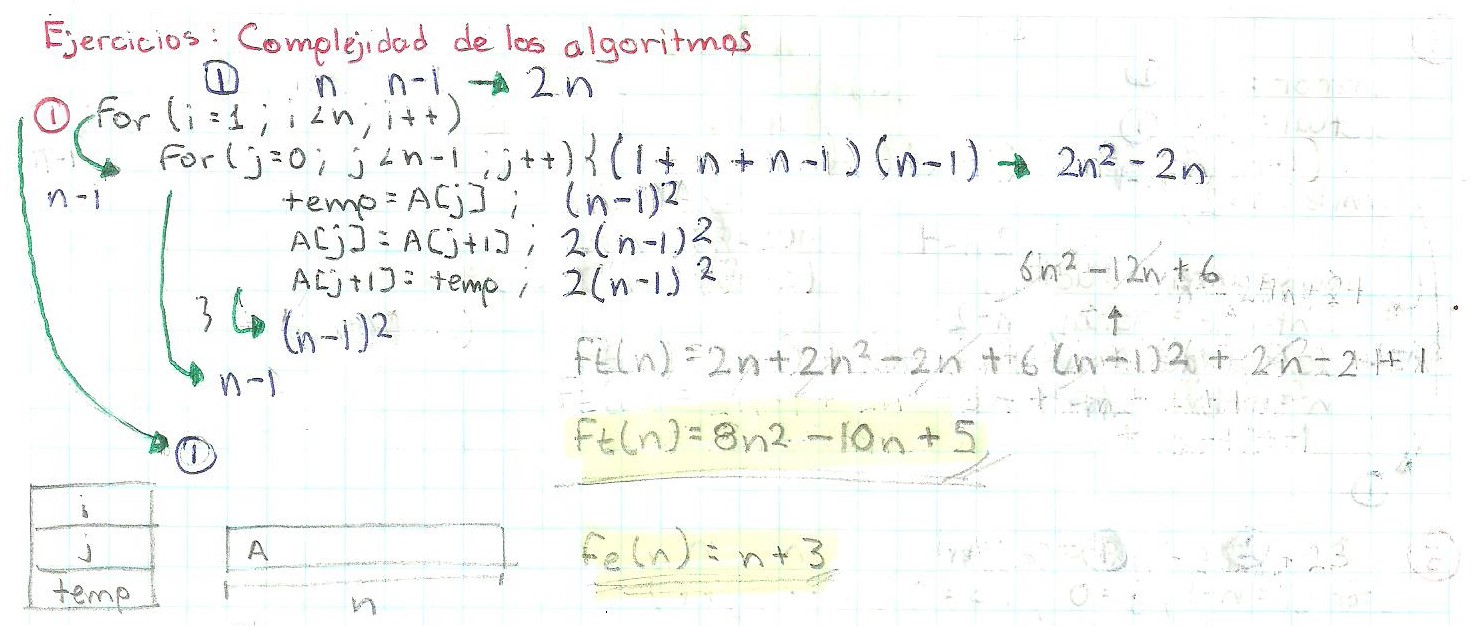 Ejercicios: Complejidad de los algoritmos
① n n-1 → 2n
① for (i=1; i<n, i++)
for (j=0; j<n-1; j++){ (1+n+n-1)(n-1) → 2n²-2n
n-1
temp=A[j]; (n-1)²
A[j]=A[j+1]; 2(n-1)²
A[j+1]=temp; 2(n-1)²
} (n-1)²
n-1
①
6n²-12n+6
↑
Ft(n)=2n+2n²-2n+6(n-1)²+2n-2+1
Ft(n)=8n²-10n+5
i
j
temp
A
n
Fe(n)=n+3